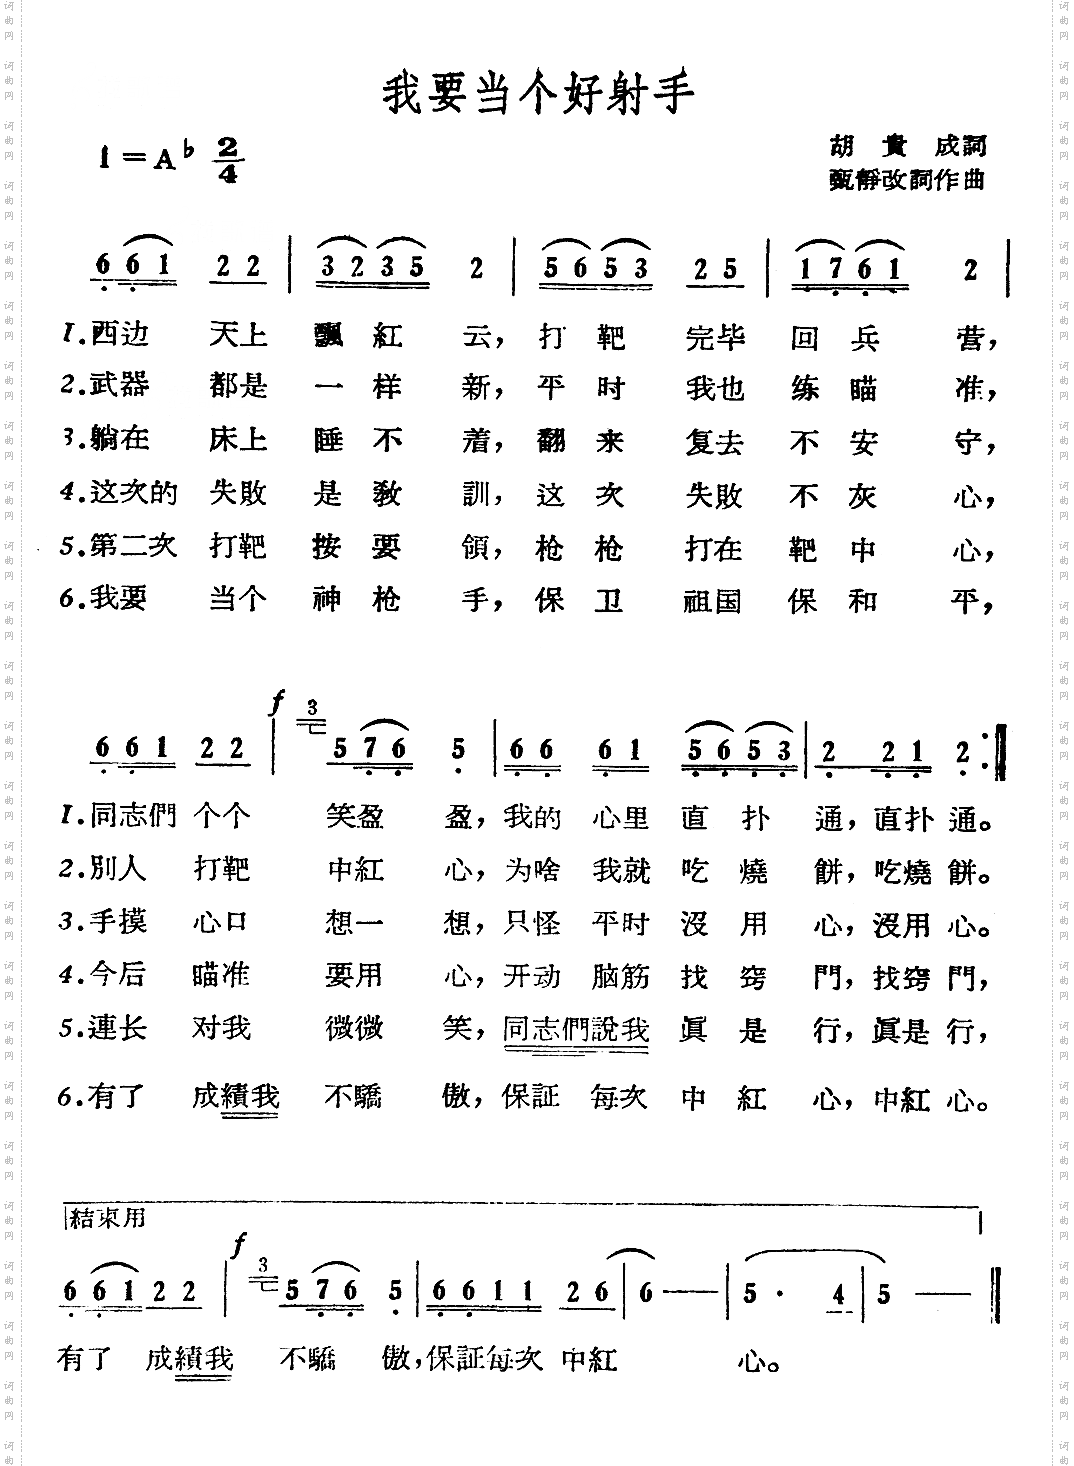 我要当个好射手
1=A♭ 2/4
胡貴成詞
甄靜改詞作曲
6 6 1 2 2 | 3 2 3 5 2 | 5 6 5 3 2 5 | 1 7 6 1 2 |
1.西边 天上 飄紅 云，打靶 完毕 回兵 营，
2.武器 都是 一样 新，平时 我也 练瞄 准，
3.躺在 床上 睡不 着，翻来 复去 不安 守，
4.这次的 失敗 是教 訓，这次 失敗 不灰 心，
5.第二次 打靶 按要 領，枪枪 打在 靶中 心，
6.我要 当个 神枪 手，保卫 祖国 保和 平，
f
6 6 1 2 2 | 3 5 7 6 5 | 6 6 6 1 5 6 5 3 | 2 2 1 2 :‖
1.同志們 个个 笑盈 盈，我的 心里 直扑 通，直扑通。
2.別人 打靶 中紅 心，为啥 我就 吃燒 餅，吃燒餅。
3.手摸 心口 想一 想，只怪 平时 沒用 心，沒用心。
4.今后 瞄准 要用 心，开动 脑筋 找窍 門，找窍門，
5.連长 对我 微微 笑，同志們說我 眞是 行，眞是行，
6.有了 成績我 不驕 傲，保証 每次 中紅 心，中紅心。
結束用
f
6 6 1 2 2 | 3 5 7 6 5 | 6 6 1 1 2 6 | 6 — | 5 · 4 | 5 — ‖
有了 成績我 不驕 傲，保証每次 中紅 心。